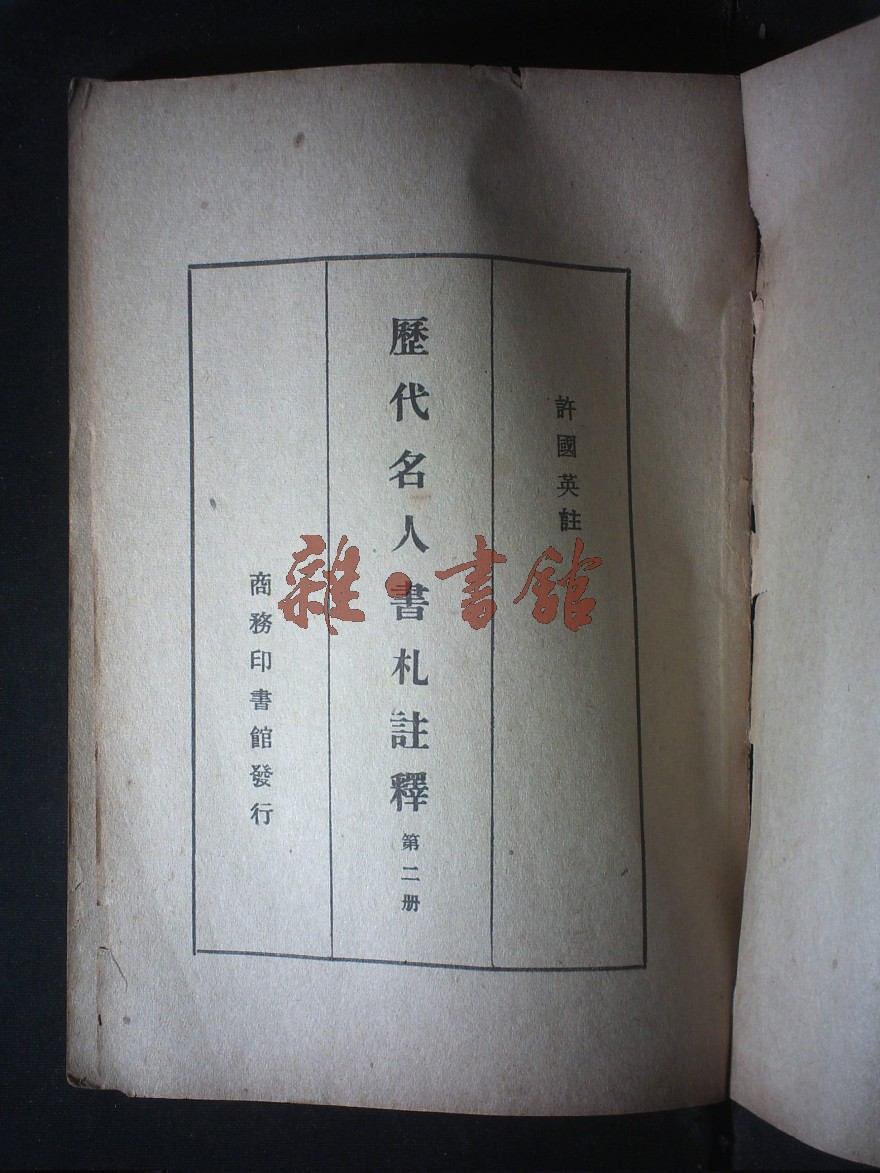 許國英註
歷代名人書札註釋 第二册
商務印書館發行
雜·書館